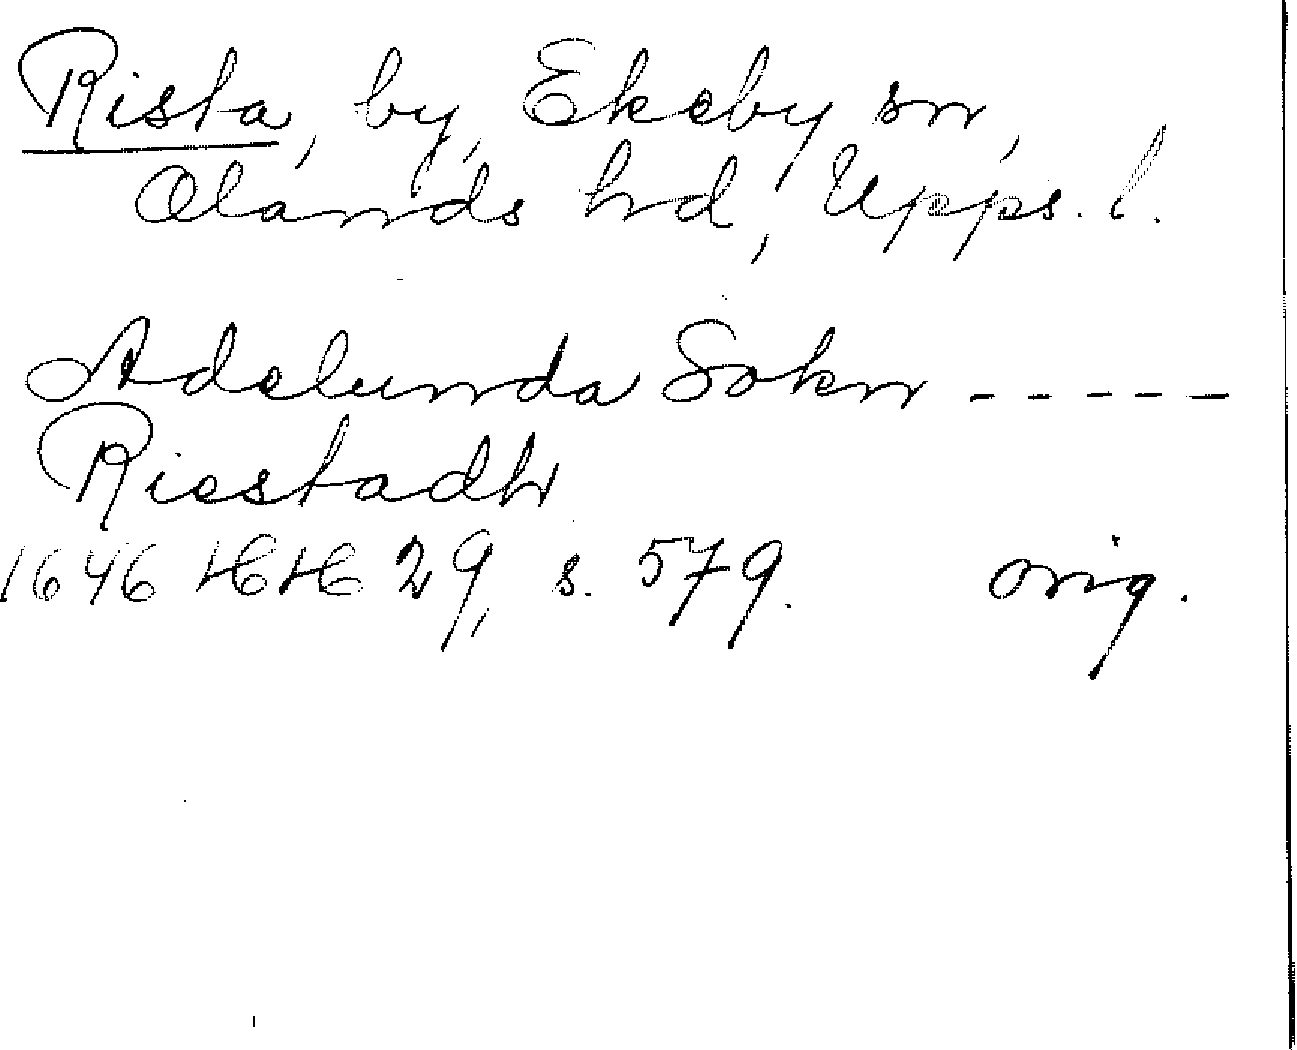 Rista, by, Ekeby sn,
Olands hd, Upps. l.
Adelunda Sokn -----
Riestadh
1646 HH 29, s. 579. orig.